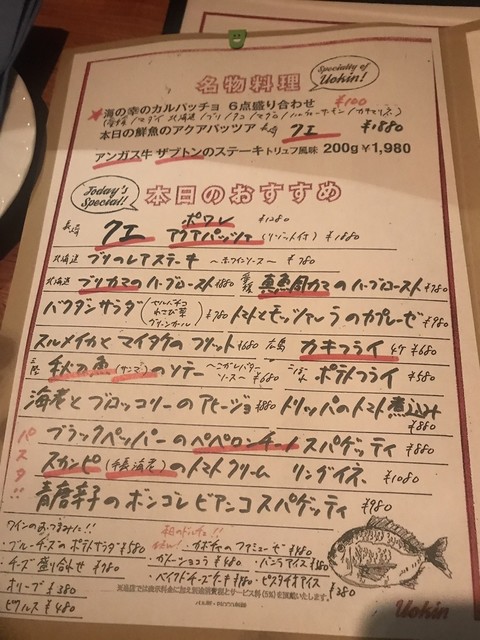 名物料理
Specialty of Uokin!
★海の幸のカルパッチョ 6点盛り合わせ
本日の鮮魚のアクアパッツァ 長崎 クエ ¥1880
アンガス牛 ザブトンのステーキトリュフ風味 200g ¥1,980
Today's Special!!
本日のおすすめ
長崎 クエ ポワレ ¥1280
アクアパッツァ (リゾット付) ¥1880
北海道 ブリのレアステーキ ～赤ワインソース～ ¥780
北海道 ブリカマのハーブロースト 愛媛 真鯛カマのハーブロースト ¥780
バクダンサラダ ¥780 トマトとモッツァレラのカプレーゼ ¥980
スルメイカとマイタケのフリット ¥680 広島 カキフライ 4ケ ¥680
秋刀魚(サンマ)のソテー ¥680 ポテトフライ ¥580
海老とブロッコリーのアヒージョ ¥880 トリッパのトマト煮込み ¥880
パスタ!!
ブラックペッパーのペペロンチーノ スパゲッティ ¥880
スカンピ(手長海老)のトマトクリーム リングイネ ¥1080
青唐辛子のボンゴレビアンコスパゲッティ ¥980
ワインのおつまみに!!
・ブルーチーズのポテトサラダ ¥580
・チーズ盛り合わせ ¥780
オリーブ ¥380
ピクルス ¥480
本日のドルチェ!!
・カタラーナ
・ベイクドチーズケーキ
・バニラアイス
・ピスタチオアイス ¥380
Uokin